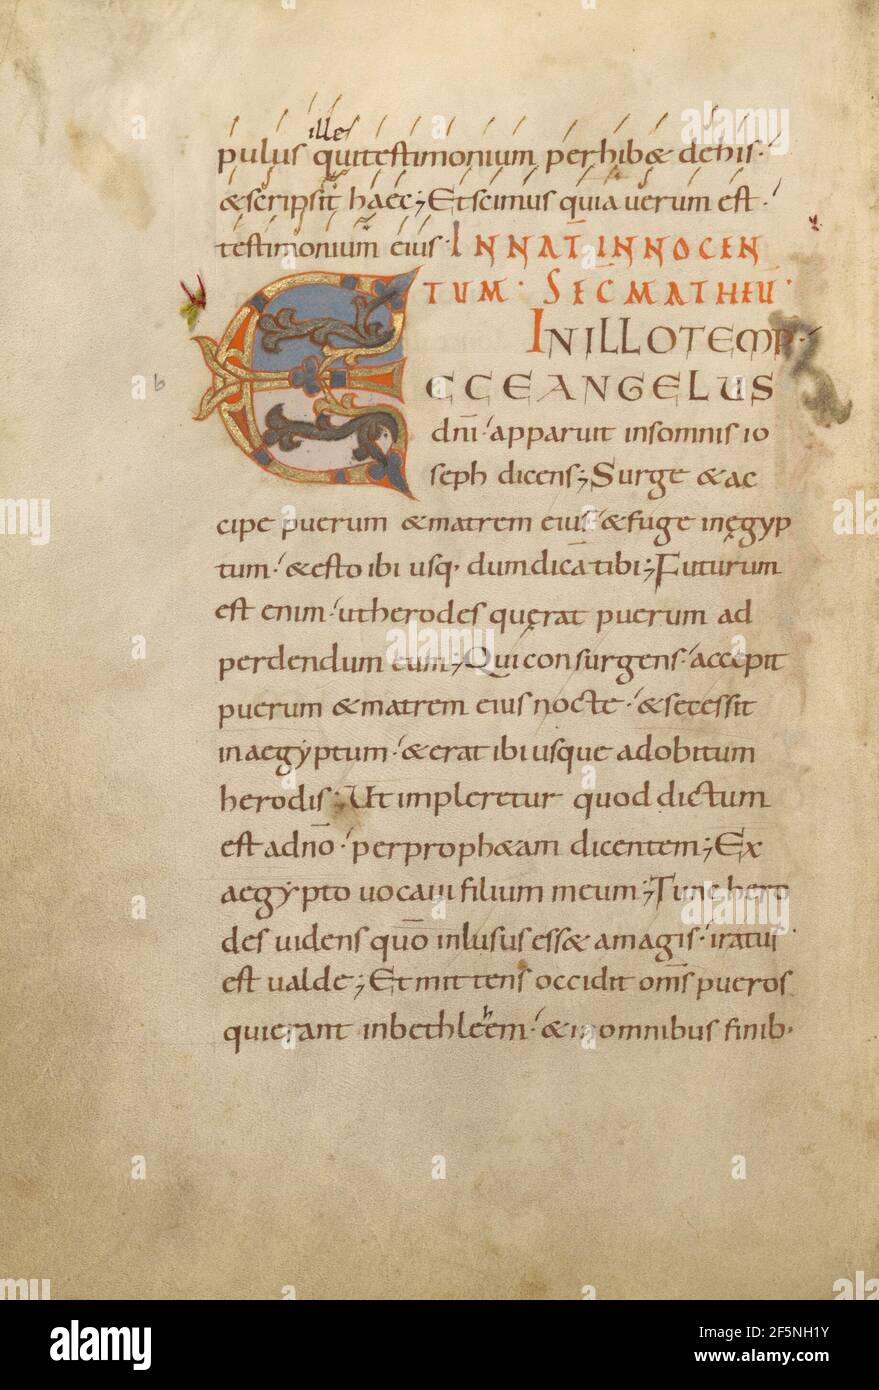 pulus illę qui testimonium perhib& dehis·
&scripsit haec; Et scimus quia uerum est·
testimonium eius· IN NAT̄ INNOCEN
TUM· SEC̄ MATHEU·
IN ILLO TEMP·
ECCE ANGELUS
dn̄i· apparuit insomnis io
seph dicens; Surge & ac
cipe puerum & matrem eius· & fuge inęgyp
tum· & esto ibi usq· dum dicā tibi; Futurum
est enim· ut herodes quęrat puerum ad
perdendum eum; Qui consurgens· accepit
puerum & matrem eius nocte· & secessit
in aegyptum· & erat ibi usque ad obitum
herodis; Ut impleretur quod dictum
est a dn̄o· per proph&am dicentem; Ex
aegypto uocaui filium meum; Tunc hero
des uidens quō inlusus ess& a magis· iratus
est ualde; Et mittens occidit om̄s pueros
qui erant in bethleem· & in omnibus finib·
b
h
alamy
alamy
Image ID: 2F5NH1Y
www.alamy.com